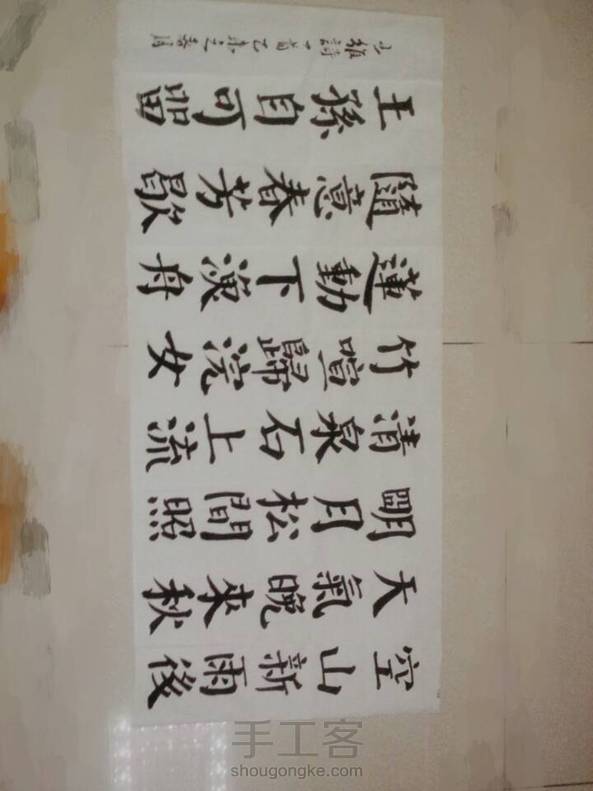 空山新雨後
天氣晚來秋
明月松間照
清泉石上流
竹喧歸浣女
蓮動下漁舟
隨意春芳歇
王孫自可留
王維詩一首乙未之春月
手工客
shougongke.com